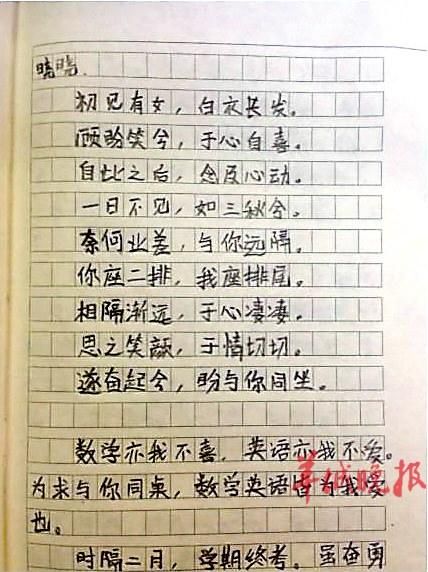 晓晓.
初见有女，白衣长发。
顾盼笑兮，于心自喜。
自此之后，念及心动。
一日不见，如三秋兮。
奈何业差，与你远隔。
你座二排，我座排尾。
相隔渐远，于心凄凄。
思之笑颜，于情切切。
遂奋起兮，盼与你同坐。
数学亦我不喜，英语亦我不爱。
为求与你同桌，数学英语皆为我爱
也。
羊城晚报
时隔二月，学期终考。虽奋勇